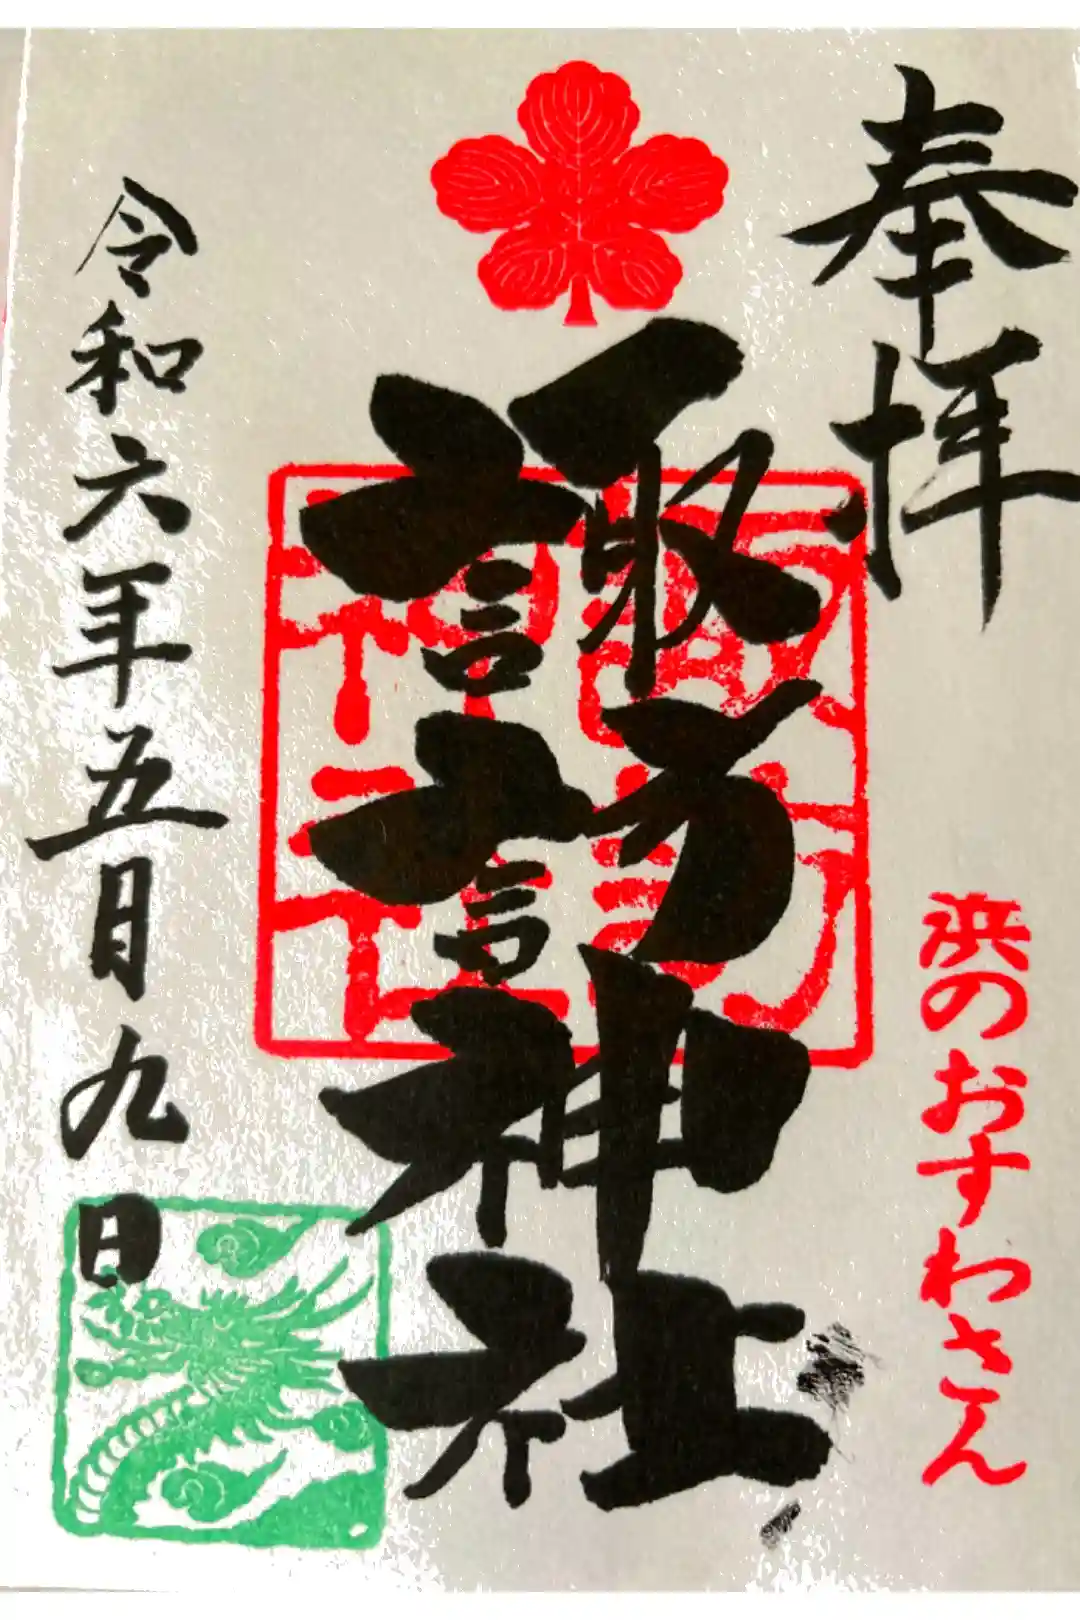 奉拝
浜のおすわさん
諏訪神社
諏訪神社
令和六年五月九日